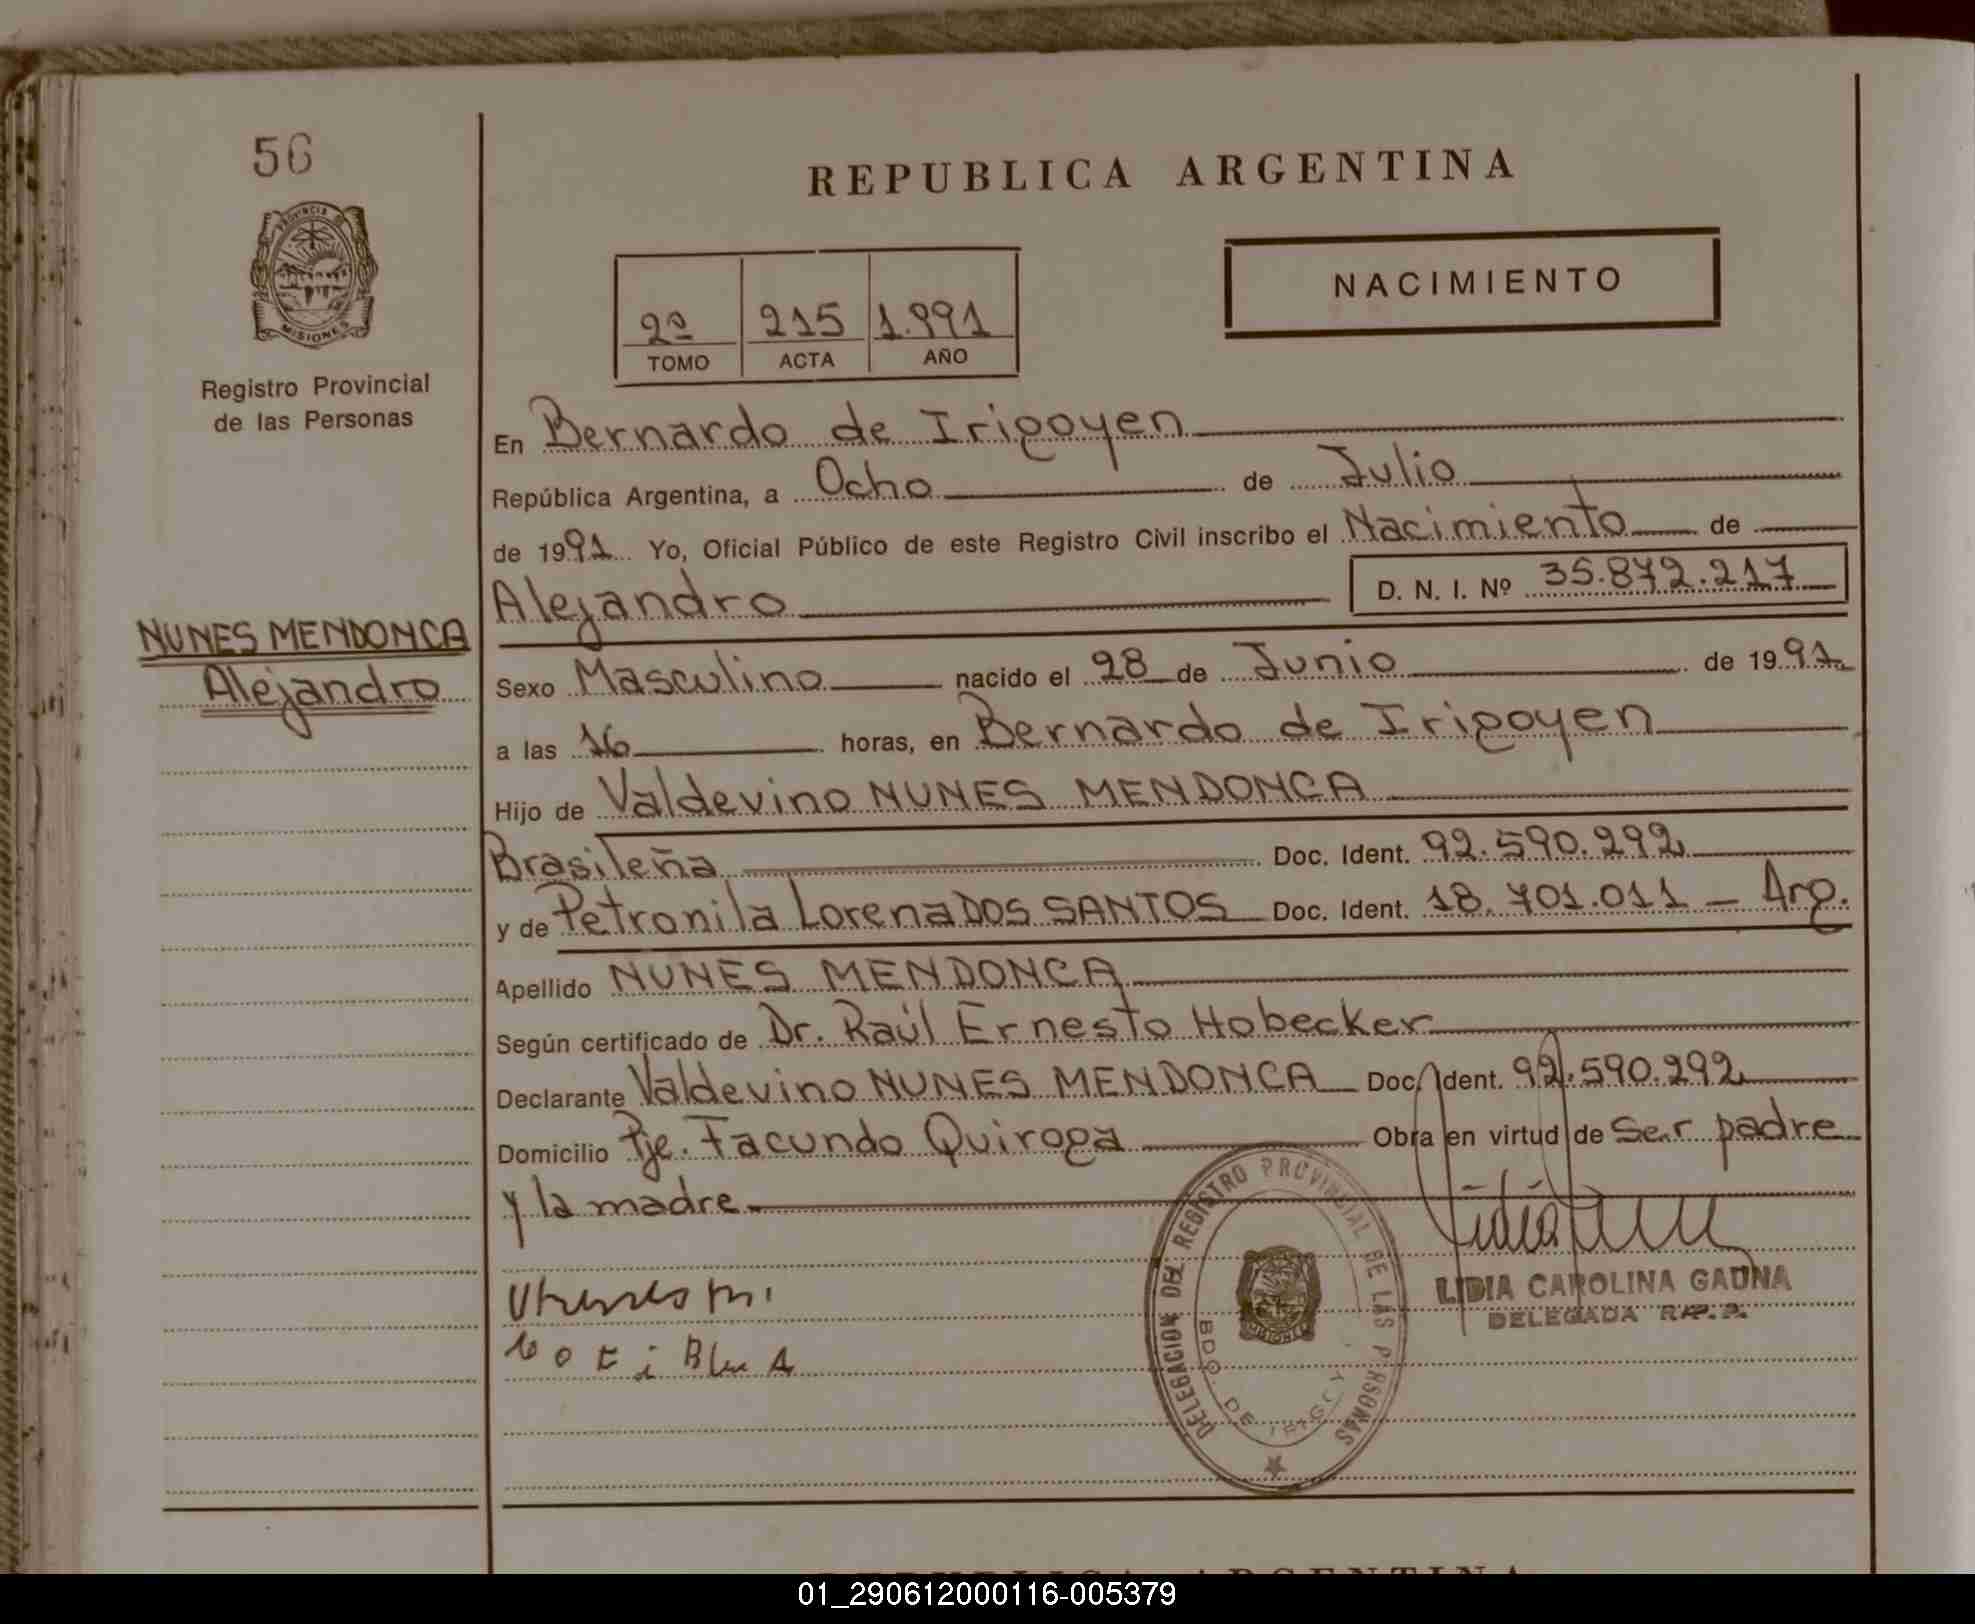 56
REPUBLICA ARGENTINA
PROVINCIA DE
MISIONES
Registro Provincial
de las Personas
2º 215 1.991
TOMO ACTA AÑO
NACIMIENTO
En Bernardo de Irigoyen
República Argentina, a Ocho de Julio
de 1991 Yo, Oficial Público de este Registro Civil inscribo el Nacimiento de
Alejandro D. N. I. Nº 35.872.217
NUNES MENDONCA
Alejandro
Sexo Masculino nacido el 28 de Junio de 1991
a las 16 horas, en Bernardo de Irigoyen
Hijo de Valdevino NUNES MENDONCA
Brasileña Doc. Ident. 92.590.292
y de Petronila Lorena DOS SANTOS Doc. Ident. 18.701.011 - Arg.
Apellido NUNES MENDONCA
Según certificado de Dr. Raúl Ernesto Hobecker
Declarante Valdevino NUNES MENDONCA Doc. Ident. 92.590.292
Domicilio Pje. Facundo Quiroga Obra en virtud de Ser padre
y la madre
DELEGACION DEL REGISTRO PROVINCIAL DE LAS PERSONAS
BDO. DE IRIGOY.
LIDIA CAROLINA GAUNA
DELEGADA R.P.P.
REPUBLICA ARGENTINA
01_290612000116-005379